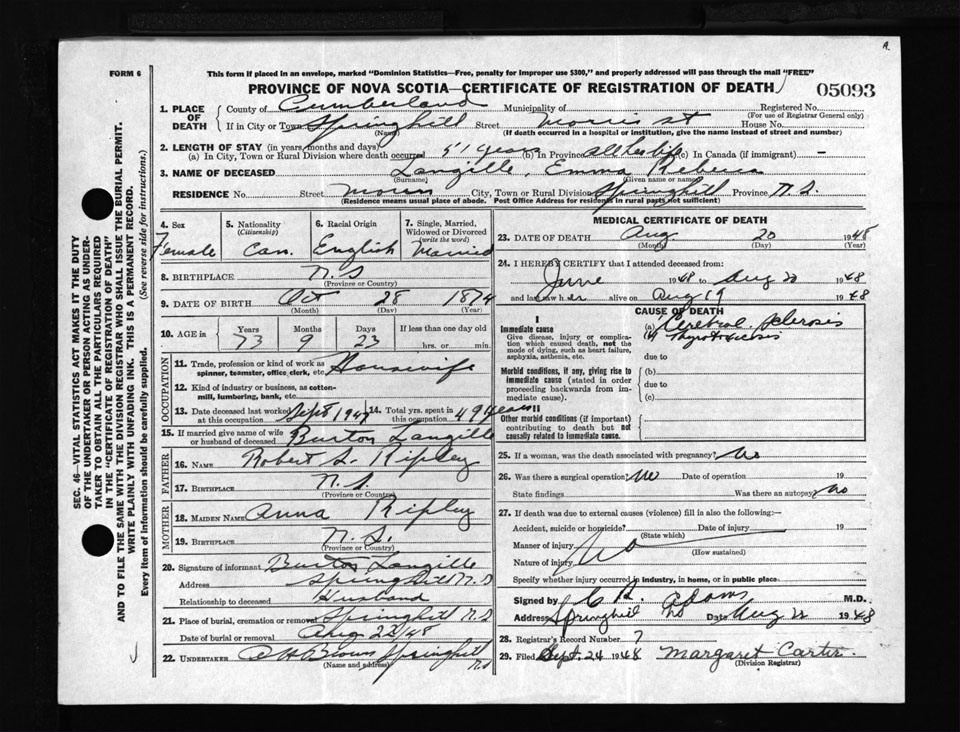 R.
FORM 6
This form if placed in an envelope, marked "Dominion Statistics—Free, penalty for improper use $300," and properly addressed will pass through the mail "FREE"
PROVINCE OF NOVA SCOTIA—CERTIFICATE OF REGISTRATION OF DEATH
05093
SEC. 46—VITAL STATISTICS ACT MAKES IT THE DUTY
OF THE UNDERTAKER OR PERSON ACTING AS UNDER-
TAKER TO OBTAIN ALL THE PARTICULARS REQUIRED
IN THE "CERTIFICATE OF REGISTRATION OF DEATH"
AND TO FILE THE SAME WITH THE DIVISION REGISTRAR WHO SHALL ISSUE THE BURIAL PERMIT.
WRITE PLAINLY WITH UNFADING INK. THIS IS A PERMANENT RECORD.
Every item of information should be carefully supplied. (See reverse side for instructions.)
1. PLACE OF DEATH
County of Cumberland Municipality of Registered No.
(For use of Registrar General only)
If in City or Town Springhill Street Morris St House No.
(If death occurred in a hospital or institution, give the name instead of street and number)
2. LENGTH OF STAY (in years, months and days)
(a) In City, Town or Rural Division where death occurred 51 years (b) In Province all her life (c) In Canada (if immigrant) —
3. NAME OF DECEASED Langille, Emma Rebecca
(Surname) (Given name or names)
RESIDENCE No. Street Morris City, Town or Rural Division Springhill Province N.S.
(Residence means usual place of abode. Post Office Address for residents in rural parts not sufficient)
4. Sex Female
5. Nationality (Citizenship) Can.
6. Racial Origin English
7. Single, Married, Widowed or Divorced (write the word) Married
8. BIRTHPLACE N.S
(Province or Country)
9. DATE OF BIRTH Oct 28 1874
(Month) (Day) (Year)
10. AGE in Years 73 Months 9 Days 23 If less than one day old hrs. or min.
OCCUPATION
11. Trade, profession or kind of work as spinner, teamster, office clerk, etc. Housewife
12. Kind of industry or business, as cotton-mill, lumbering, bank, etc.
13. Date deceased last worked at this occupation Sept 1947
14. Total yrs. spent in this occupation 49 years
15. If married give name of wife or husband of deceased Burton Langille
FATHER
16. NAME Robert S. Ripley
17. BIRTHPLACE N.S.
(Province or Country)
MOTHER
18. MAIDEN NAME Anna Ripley
19. BIRTHPLACE N.S.
(Province or Country)
20. Signature of informant Burton Langille
Address Springhill N.S
Relationship to deceased Husband
21. Place of burial, cremation or removal Springhill N.S
Date of burial or removal Aug 22/48
22. UNDERTAKER Brown Springhill N.S
(Name and address)
MEDICAL CERTIFICATE OF DEATH
23. DATE OF DEATH Aug 20 1948
(Month) (Day) (Year)
24. I HEREBY CERTIFY that I attended deceased from:
June 1948 to Aug 20 1948
and last saw her alive on Aug 19 1948
CAUSE OF DEATH
I
Immediate cause
Give disease, injury or complication which caused death, not the mode of dying, such as heart failure, asphyxia, asthenia, etc.
(a) Cerebral Sclerosis
(b) Thyrotoxicosis
due to
Morbid conditions, if any, giving rise to immediate cause (stated in order proceeding backwards from immediate cause).
(b)
due to
(c)
II
Other morbid conditions (if important) contributing to death but not causally related to immediate cause.
25. If a woman, was the death associated with pregnancy? No
26. Was there a surgical operation? No Date of operation 19
State findings Was there an autopsy? No
27. If death was due to external causes (violence) fill in also the following:—
Accident, suicide or homicide? Date of injury 19
(State which)
Manner of injury No
(How sustained)
Nature of injury
Specify whether injury occurred in industry, in home, or in public place
Signed by Adams M.D.
Address Springhill NS Date Aug 21 1948
28. Registrar's Record Number 7
29. Filed Sept. 24 1948 Margaret Carter.
(Division Registrar)